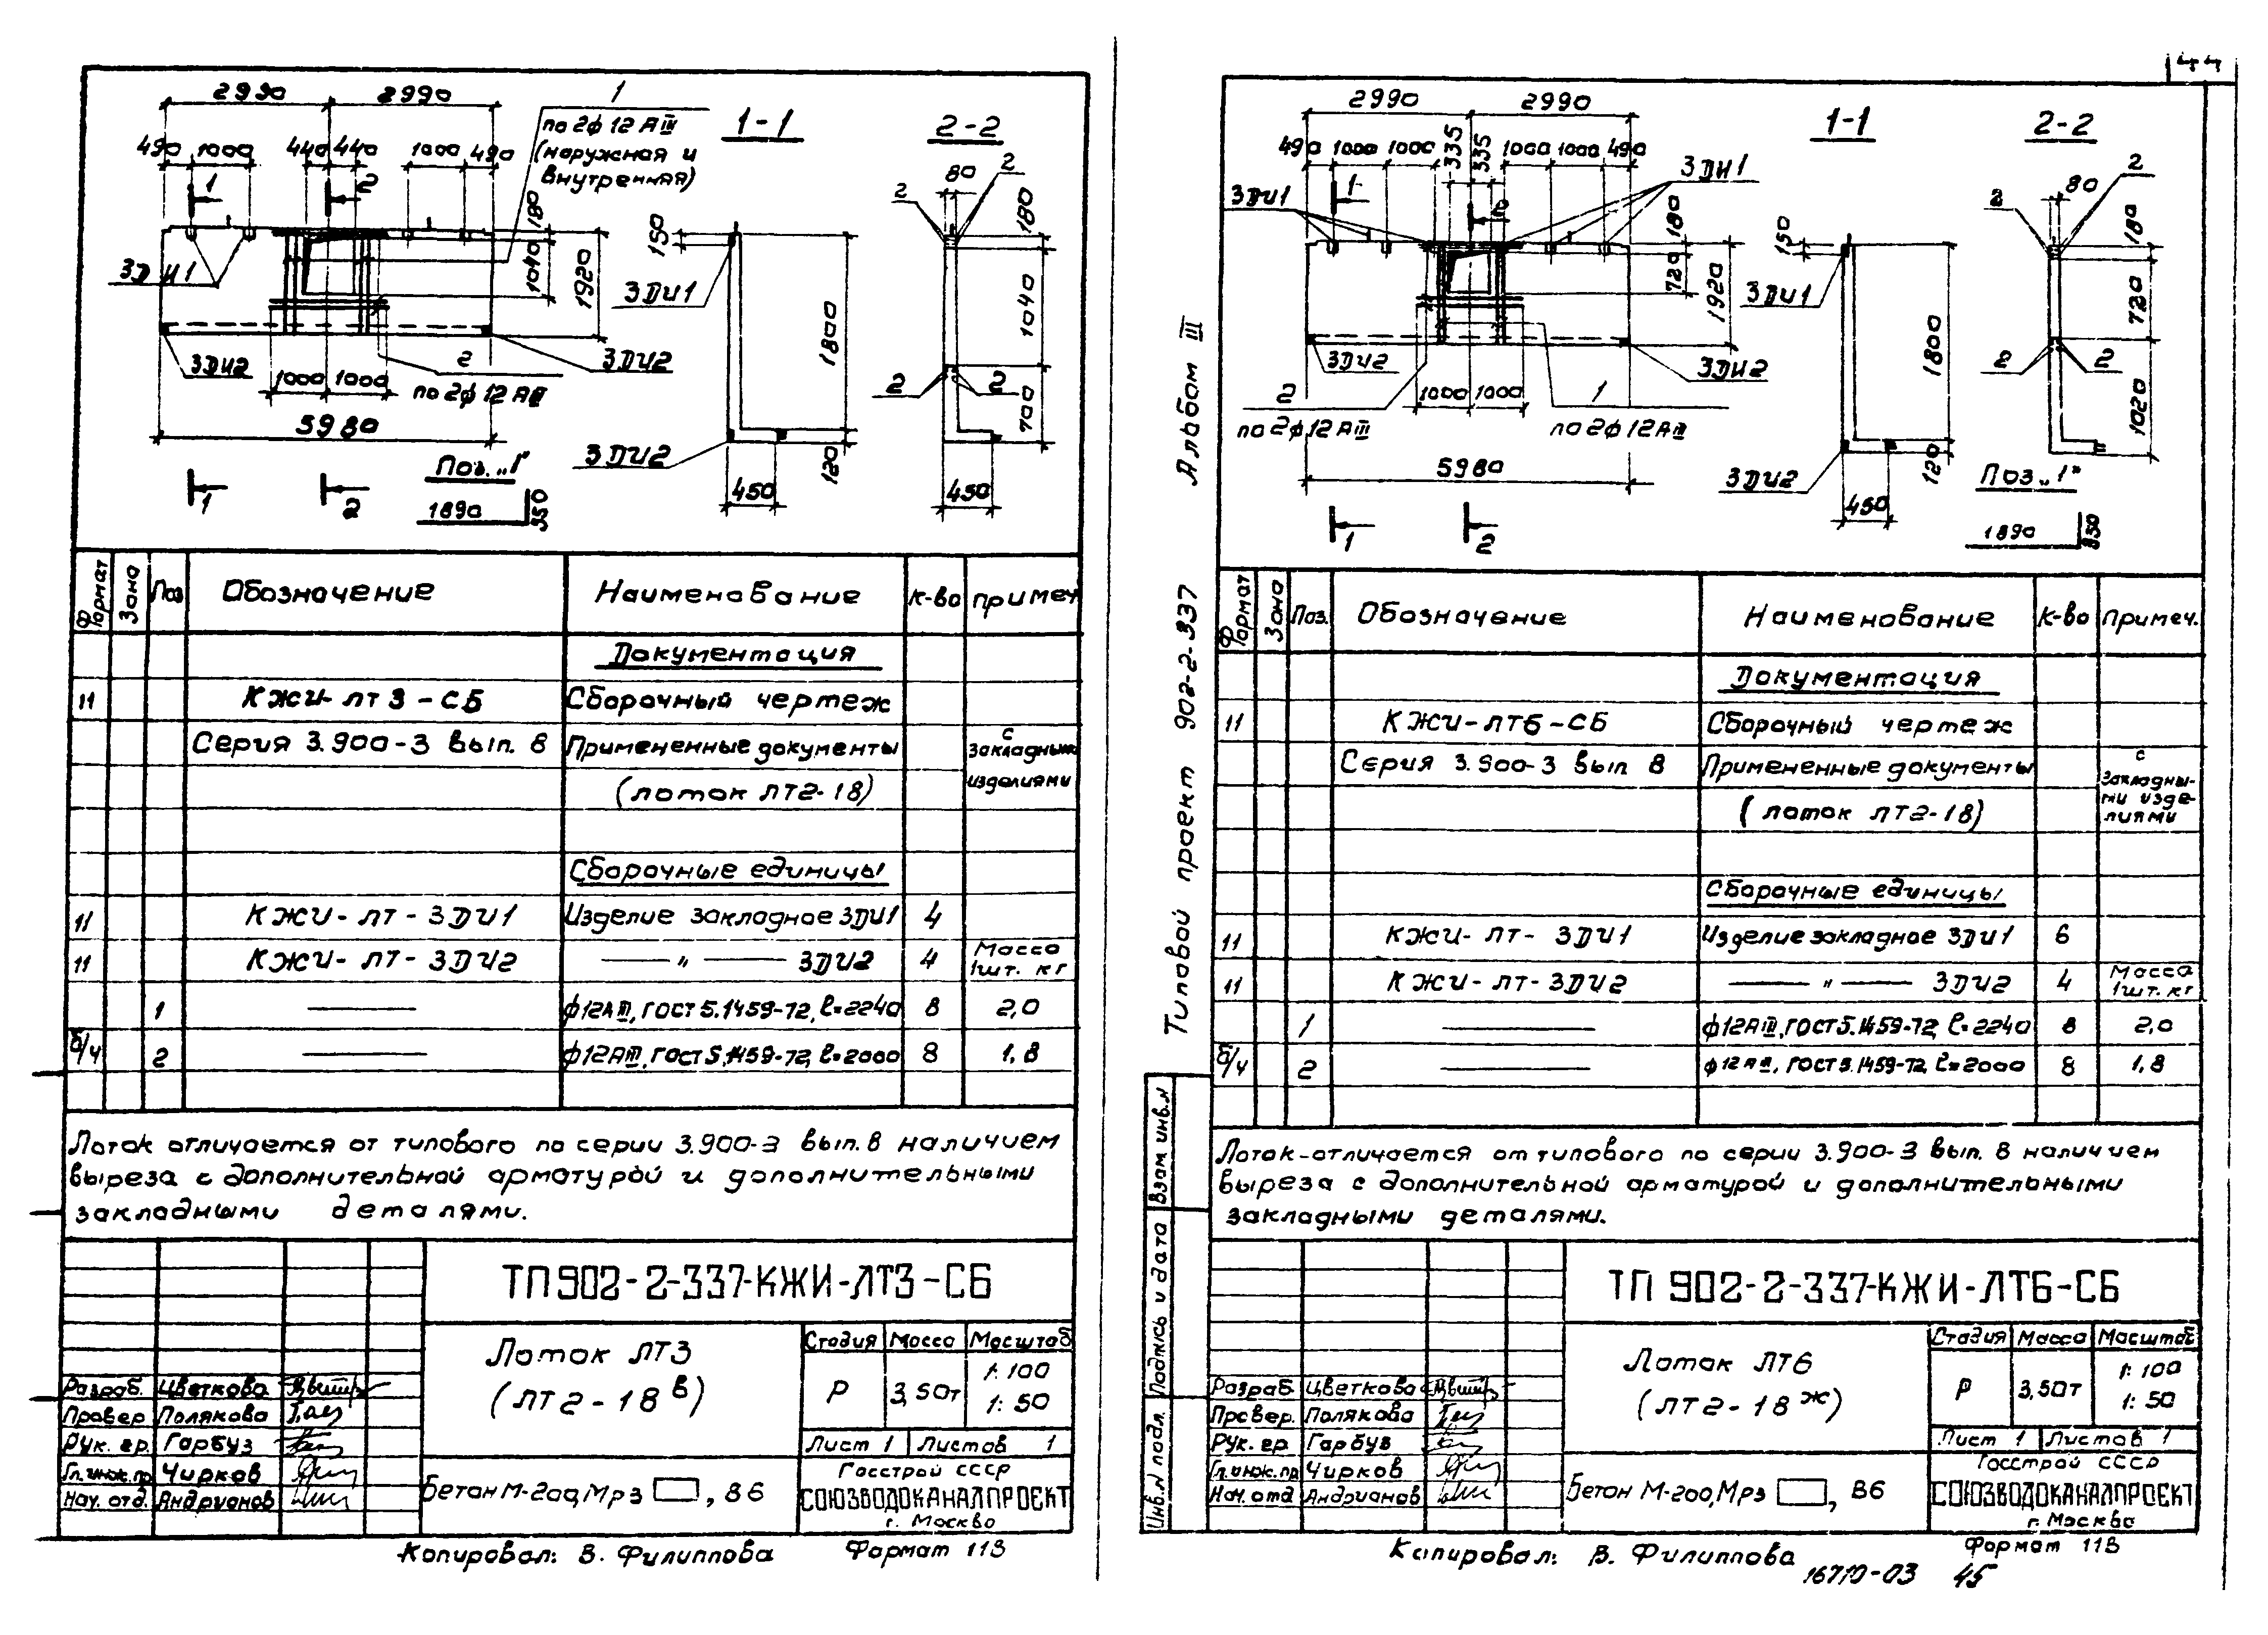 2990 2990
490 1000 440 440 1000 490
1
по 2ф 12 АIII
(наружная и
внутренняя)
1-1
2-2
1
2
180
1040
1920
3ДИ1
3ДИ2
3ДИ2
2
по 2ф 12 АIII
1000 1000
5980
1
2
Поз. „1"
1890
350
150
3ДИ1
1800
3ДИ2
120
450
2
80
2
180
1040
2
2
700
450
Формат
Зона
Поз
Обозначение
Наименование
К-во
примеч
Документация
11 КЖИ-ЛТ3-СБ Сборочный чертеж
Серия 3.900-3 вып. 8 Примененные документы с закладными
(лоток ЛТ2-18) изделиями
Сборочные единицы
11 КЖИ-ЛТ-3ДИ1 Изделие закладное 3ДИ1 4
11 КЖИ-ЛТ-3ДИ2 —— " —— 3ДИ2 4 Масса 1шт. кг
1 —— ф12АIII, ГОСТ 5.1459-72, ℓ=2240 8 2,0
б/ч 2 —— ф12АIII, ГОСТ 5.1459-72, ℓ=2000 8 1,8
Лоток отличается от типового по серии 3.900-3 вып. 8 наличием
выреза с дополнительной арматурой и дополнительными
закладными деталями.
ТП 902-2-337-КЖИ-ЛТ3-СБ
Лоток ЛТ3
(ЛТ2-18в)
Стадия Масса Масштаб
Р 3,50т 1:100
1:50
Лист 1 Листов 1
Разраб. Цветкова
Провер Полякова
Рук. гр. Гарбуз
Гл.инж.пр Чирков
Нач. отд. Андрианов
Бетон М-200, Мрз , В6
Госстрой СССР
СОЮЗВОДОКАНАЛПРОЕКТ
г. Москва
Копировал: В. Филиппова Формат 11В
44
Типовой проект 902-2-337 Альбом III
Инв.N подл. Подпись и дата Взам. инв.N
2990 2990
490 1000 1000 335 335 1000 1000 490
1-1
2-2
3ДИ1
3ДИ1
1
2
180
720
1920
3ДИ2
3ДИ2
2
по 2ф 12АIII
1000 1000
1
по 2ф 12АIII
5980
1
2
150
3ДИ1
1800
3ДИ2
120
450
2
80
2
180
720
2
2
1020
Поз. „1"
1890
350
Формат
Зона
Поз.
Обозначение
Наименование
К-во
Примеч.
Документация
11 КЖИ-ЛТ6-СБ Сборочный чертеж
Серия 3.900-3 вып 8 Примененные документы с закладны-
(лоток ЛТ2-18) ми изде-
лиями
Сборочные единицы
11 КЖИ-ЛТ-3ДИ1 Изделие закладное 3ДИ1 6
11 КЖИ-ЛТ-3ДИ2 —— " —— 3ДИ2 4 Масса 1шт. кг
1 —— ф12АIII, ГОСТ 5.1459-72, ℓ=2240 8 2,0
б/ч 2 —— ф12АIII, ГОСТ 5.1459-72, ℓ=2000 8 1,8
Лоток-отличается от типового по серии 3.900-3 вып. 8 наличием
выреза с дополнительной арматурой и дополнительными
закладными деталями.
ТП 902-2-337-КЖИ-ЛТ6-СБ
Лоток ЛТ6
(ЛТ2-18ж)
Стадия Масса Масштаб
Р 3,50т 1:100
1:50
Лист 1 Листов 1
Разраб. Цветкова
Провер. Полякова
Рук. гр. Гарбуз
Гл.инж.пр Чирков
Нач. отд Андрианов
Бетон М-200, Мрз , В6
Госстрой СССР
СОЮЗВОДОКАНАЛПРОЕКТ
г. Москва
Копировал: В. Филиппова Формат 11В
16710-03 45